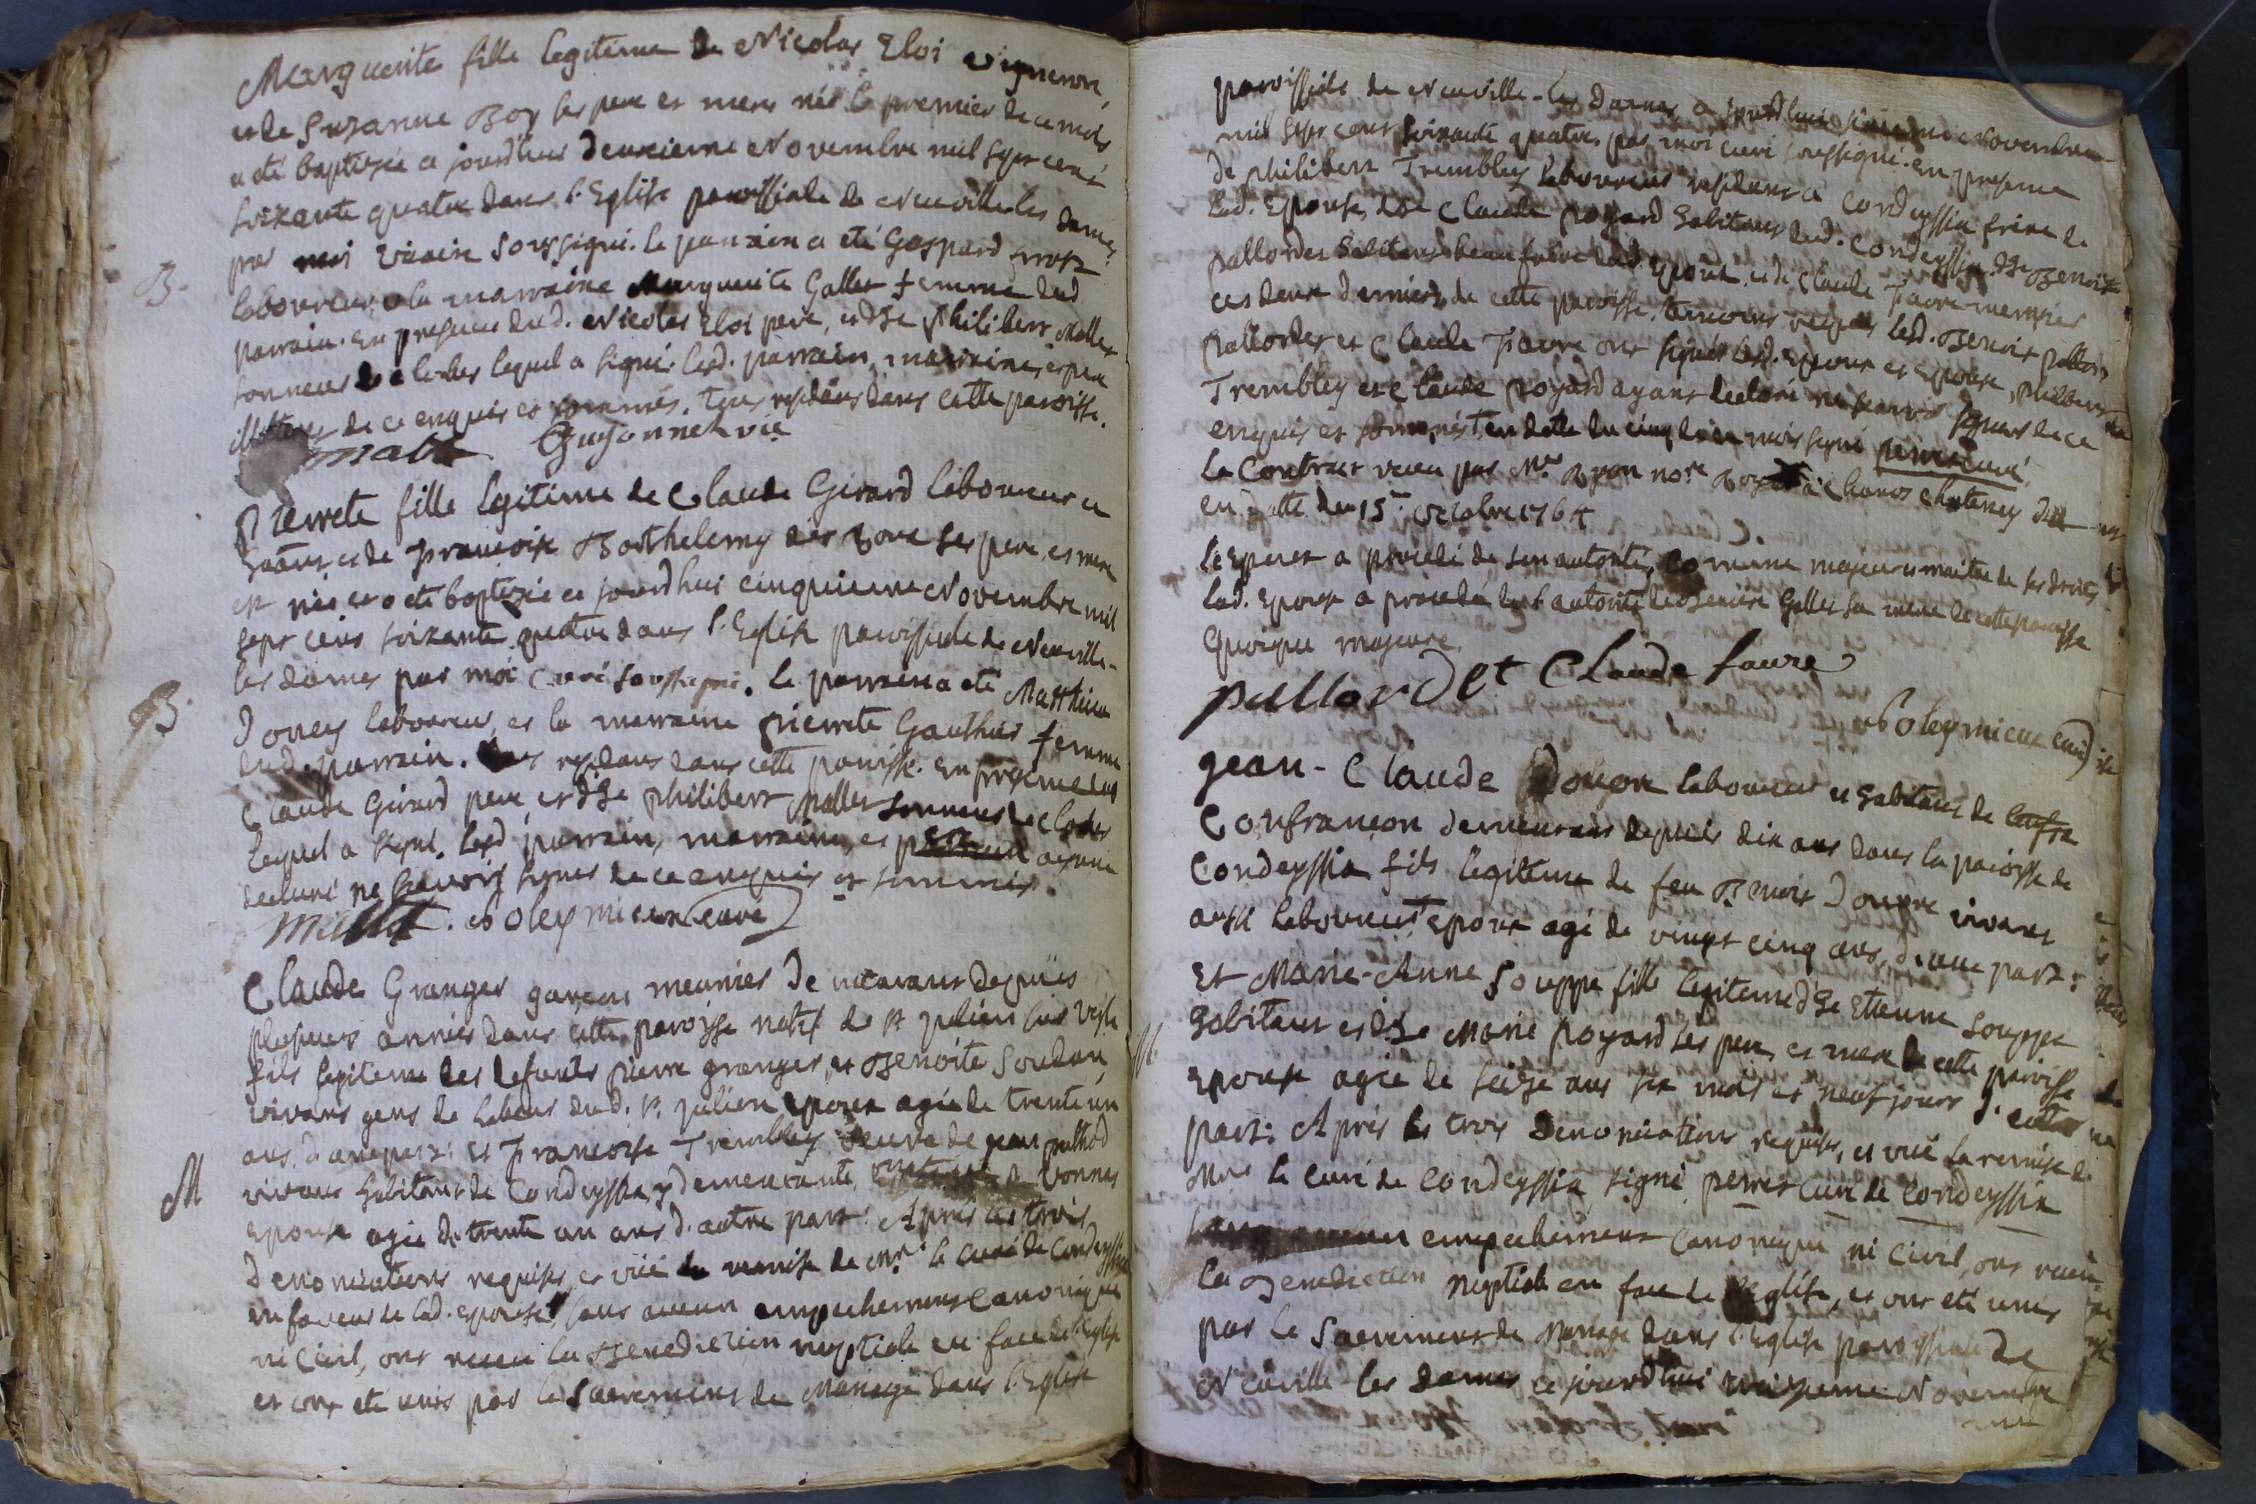 Marguerite fille legitime de Nicolas Eloi vigneron,
et de Suzanne Boy ses pere et mere née le premier de ce mois
a été baptizée ce jourd'hui deuxieme Novembre mil sept cent
soixante quatre dans l'Eglise paroissiale de Neuville les dames
par moi vicaire soussigné. le parrain a eté Gaspard
B.
laboureur, et la marraine Marguerite Gallet femme dud
parrain. En presence dud. Nicolas Eloi pere, et de Philibert Mallet
sonneur de cloches lequel a signé. lesd. parrain, marraine, et pere
illitérés de ce enquis et sommés. tous residans dans cette paroisse.
Mallet Guyonnet vic
Pierrete fille legitime de Claude Girard laboureur et
et de Françoise Barthelemy ses pere, et mere
est née et a eté baptizée ce jourd'hui cinquieme Novembre mil
sept cens soixante quatre dans l'Eglise paroissiale de Neuville-
les dames par moi Curé soussigné. le parrain a eté Matthieu
B.
Donney laboureur, et la marraine Pierrete Gauthier femme
dud. parrain. tous residans dans cette paroisse. En presence dud
Claude Girard pere, et de philibert Mallet sonneur de cloches
lequel a signé. lesd parrain, marraine, et pere ayant
declaré ne sçavoir signer de ce enquis et sommés.
Mallet. Poleymieux curé
Claude Granger garçon meunier demeurant depuis
plusieurs années dans cette paroisse natif de St julien sur Vesle
fils legitime des defunts pierre granger, et Benoite Soudan
vivans gens de labeur dud. St. julien, epoux agé de trente un
ans d'une part: et Françoise Tremblay veuve de jean
M
vivant habitant de Condeyssia y demeurante, Vonnas
epouse agée de trente un ans d'autre part. Après les trois
denonciations requises, et vüe la remise de Mr. le curé de Condeyssia
en faveur de lad. epouse, sans aucun empechement canonique
ni Civil, ont receu la Benediction nuptiale en face de l'Eglise
et ont eté unis par le Sacrement de Mariage dans l'Eglise
paroissiale de Neuville-les Dames ce jourd'hui Novembre
mil sept cent soixante quatre par moi curé soussigné. en presence
de philibert Tremblay laboureur residant a Condeyssia frere de
lad. Epouse, de Claude poyard habitant dud. Condeyssia, de Benoist
pallordet habitant beau frere dud. Epoux, et de Claude Favre meunier
ces deux derniers de cette paroisse. temoins requis lesd. Benoist pallord
pallordet et Claude Favre ont signé lesd. epoux et epouse, philibert
Tremblay et Claude poyard ayans declaré ne sçavoir signer de ce
enquis et sommés. en datte du cinq dud. mois signé perret curé
Le Contract receu par Me. nore Royal a Chanos chatenay
en datte du 15e. octobre 1764
L'epoux a procedé de son autorité, comme majeur et maitre de ses droits
Lad. Epouse a procedé de l'autorité de Benoite Gallet sa mere de cette paroisse
Quoique majeure.
pallordet Claude favre
Poleymieux curé
Jean-Claude Douvre laboureur et habitant de
Confrançon demeurant depuis dix ans dans la paroisse de
Condeyssia fils legitime de feu Benoit Douvre vivant
aussi laboureur, Epoux agé de vingt cinq ans, d'une part:
Et Marie-Anne Souppe fille legitime de Etienne Souppe
M
habitant et de Marie poyard ses pere, et mere de cette paroisse
Epouse agée de seize ans six mois et neuf jours d'autre
part: Après les trois denonciations requises, et vüe la remise de
Mre le curé de Condeyssia signé perret curé de Condeyssia
sans aucun empechement Canonique ni Civil, ont receu
la Benediction nuptiale en face de l'Eglise, et ont eté unis
par le Sacrement de Mariage dans l'Eglise paroissiale de
Neuville les Dames ce jourd'hui treizieme Novembre
mil